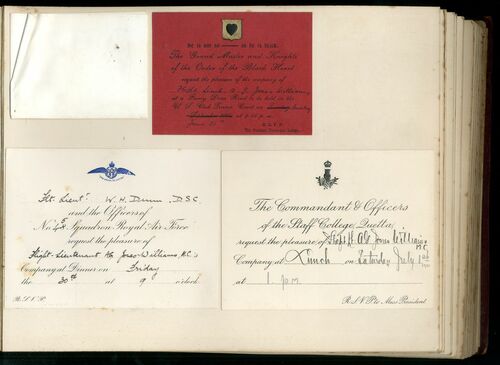 The Grand Master and Knights
of the Order of the Black Heart
request the pleasure of the company of
Flight Lieut. A. G. Jones Williams
at a Fancy Dress to be held in the
U. S. Club Court on
June at
R. S. V. P.
Flt. Lieut. W. H. Dunn, D.S.C.
and the Officers of
No. 5 Squadron Royal Air Force
request the pleasure of
Flight-Lieutenant Jones-Williams, M.C's
Company at Dinner on Friday
the 30th at 9 o'clock.
R.S.V.P.
The Commandant & Officers
of the Staff College, Quetta,
request the pleasure of Jones Williams M.C.
Company at Lunch on Saturday July 1st
at 1. p.m.
R.S.V.P to Mess President